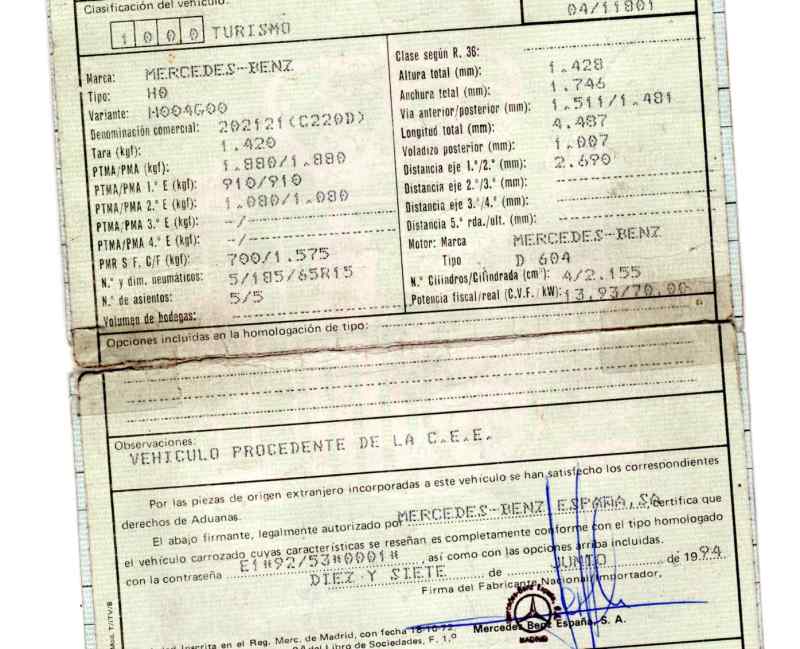 Clasificación del vehículo:
04/11801
1000 TURISMO
Marca: MERCEDES-BENZ
Tipo: H0
Variante: H004G00
Denominación comercial: 202121(C220D)
Tara (kgf): 1.420
PTMA/PMA (kgf): 1.880/1.880
PTMA/PMA 1.º E (kgf): 910/910
PTMA/PMA 2.º E (kgf): 1.080/1.080
PTMA/PMA 3.º E (kgf): -/
PTMA/PMA 4.º E (kgf): -/
PMR S/F, C/F (kgf): 700/1.575
N.º y dim. neumáticos: 5/185/65R15
N.º de asientos: 5/5
Volumen de bodegas:
Clase según R. 36:
Altura total (mm): 1.428
Anchura total (mm): 1.746
Via anterior/posterior (mm): 1.511/1.481
Longitud total (mm): 4.487
Voladizo posterior (mm): 1.007
Distancia eje 1.º/2.º (mm): 2.690
Distancia eje 2.º/3.º (mm):
Distancia eje 3.º/4.º (mm):
Distancia 5.ª rda./ult. (mm):
Motor: Marca MERCEDES-BENZ
Tipo D 604
N.º Cilindros/Cilindrada (cm³): 4/2.155
Potencia fiscal/real (C.V.F./kW): 13,93/70,00
Opciones incluidas en la homologación de tipo:
Observaciones:
VEHICULO PROCEDENTE DE LA C.E.E.
Por las piezas de origen extranjero incorporadas a este vehículo se han satisfecho los correspondientes
derechos de Aduanas.
El abajo firmante, legalmente autorizado por MERCEDES-BENZ ESPAÑA, SA, certifica que
el vehículo carrozado cuyas características se reseñan es completamente conforme con el tipo homologado
con la contraseña E1*92/53*0001* así como con las opciones arriba incluidas.
DIEZ Y SIETE de JUNIO de 1994
Firma del Fabricante Nacional/Importador,
Mercedes Benz España, S. A.
MADRID
Inscrita en el Reg. Merc. de Madrid, con fecha 18-10-72
del Libro de Sociedades, F. 1,º
Mod. T/ITV/B